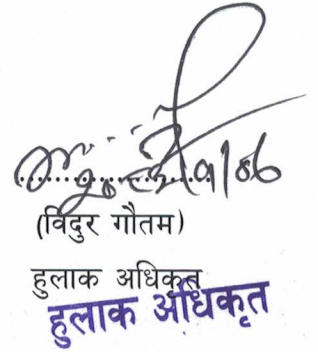 (विदुर गौतम)
हुलाक अधिकृत
हुलाक अधिकृत